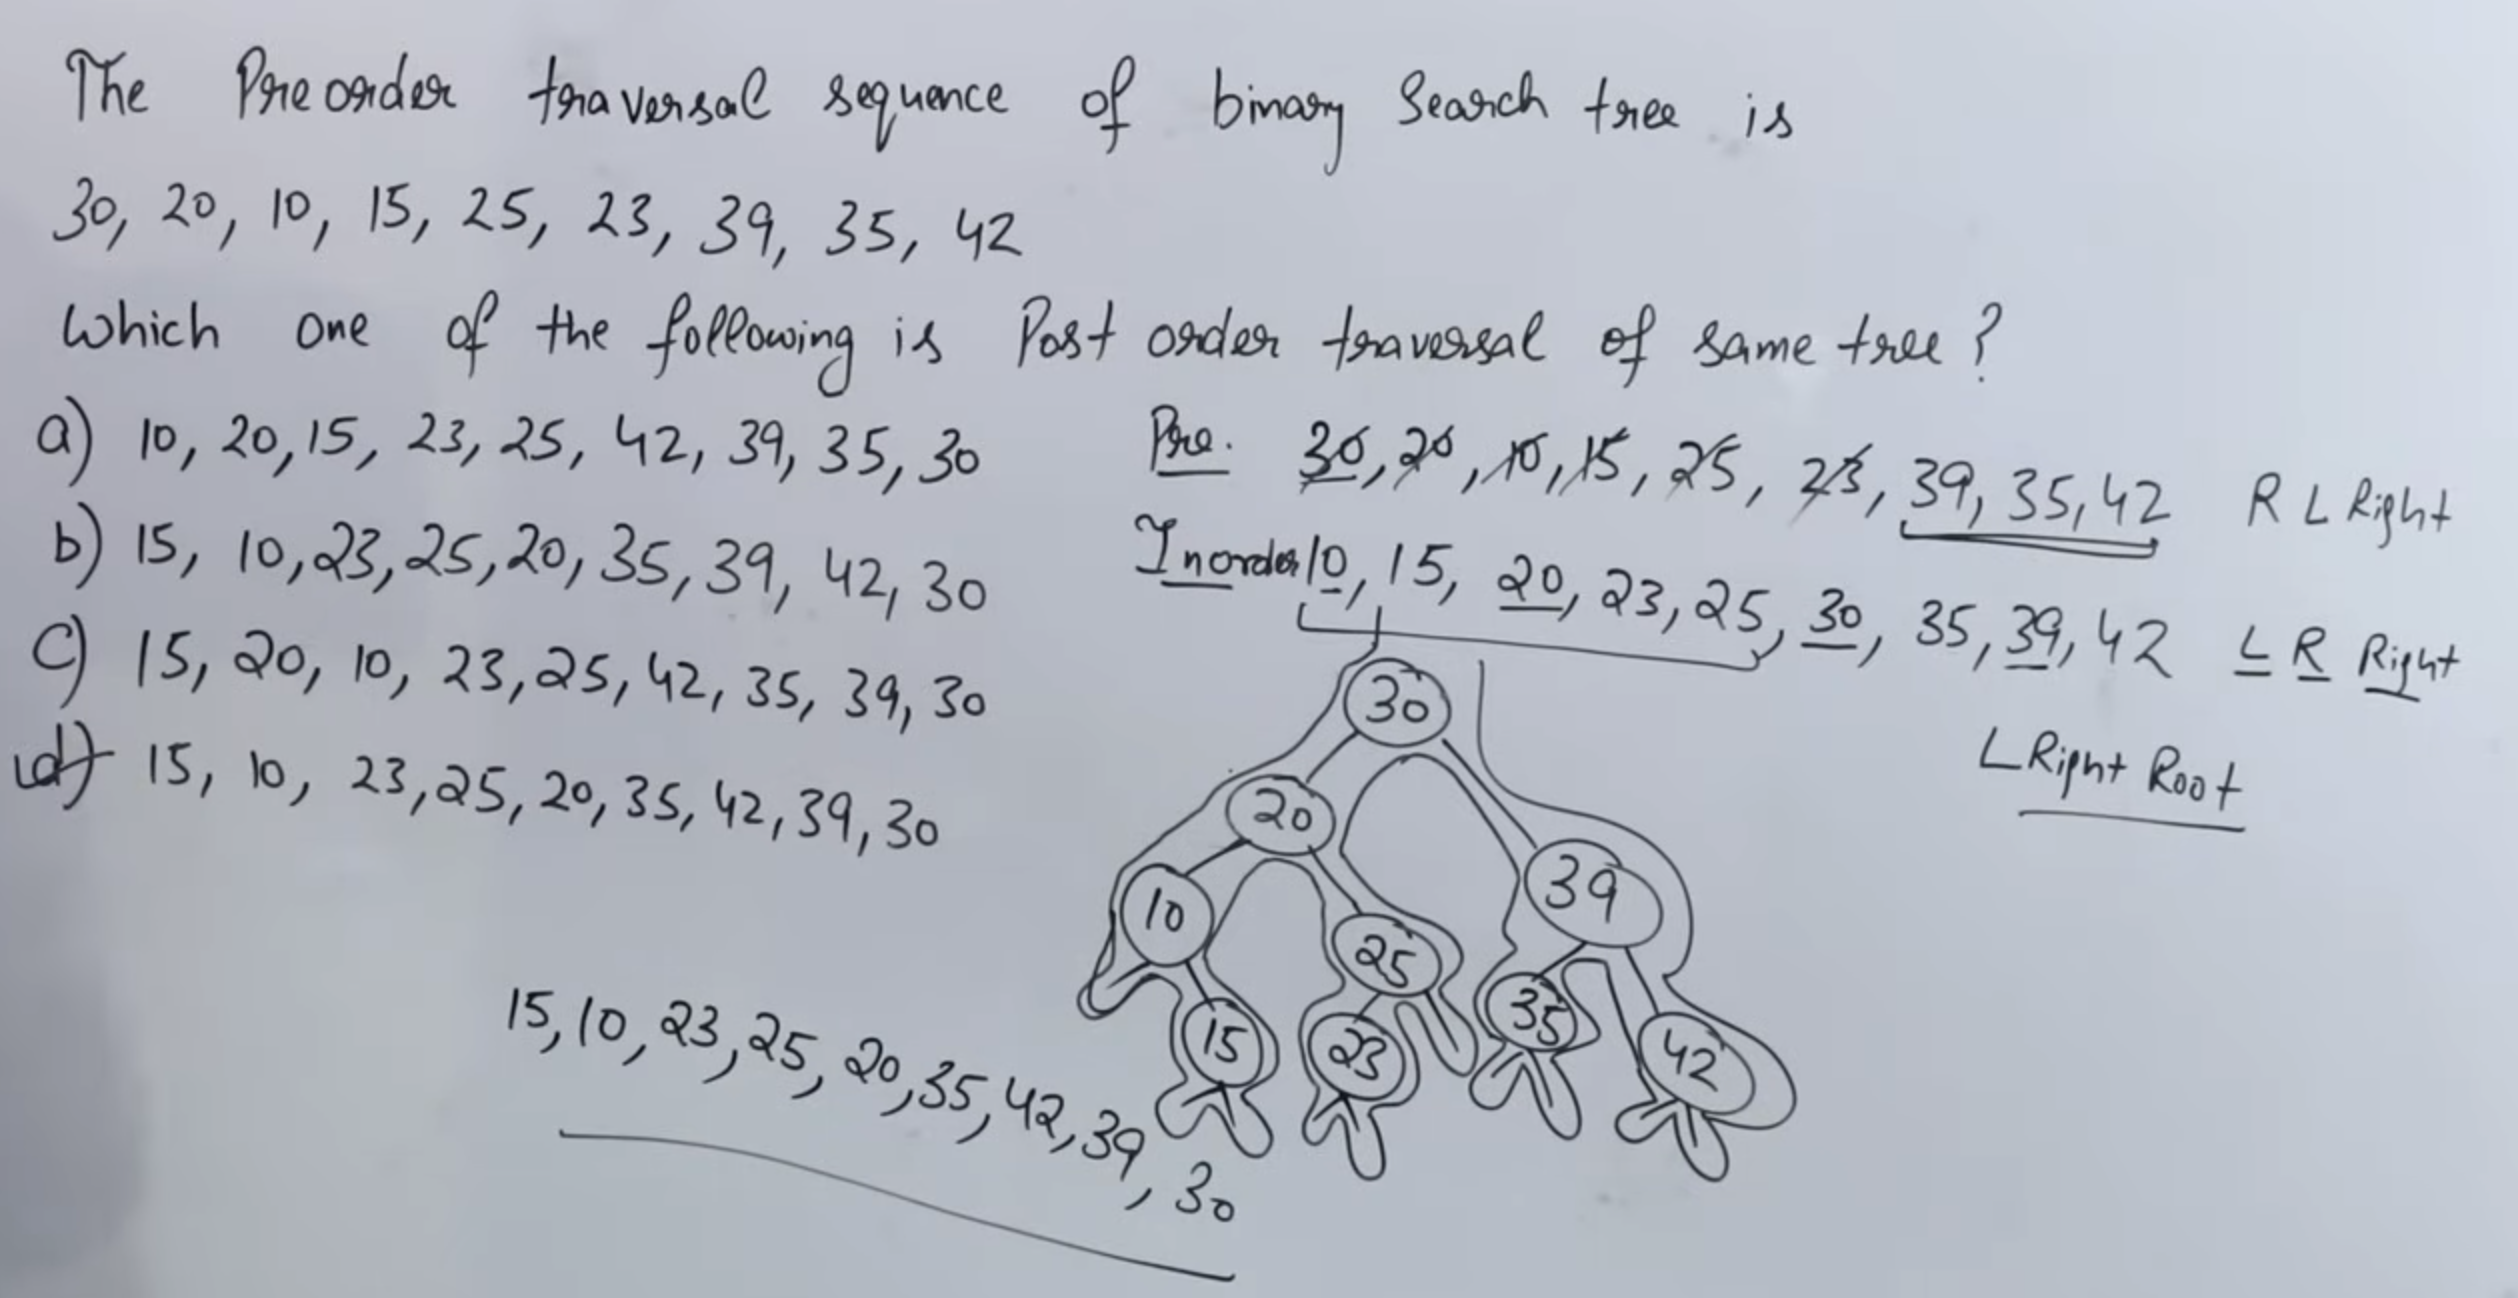 The Preorder traversal sequence of binary Search tree is
30, 20, 10, 15, 25, 23, 39, 35, 42
Which one of the following is Post order traversal of same tree?
a) 10, 20, 15, 23, 25, 42, 39, 35, 30
b) 15, 10, 23, 25, 20, 35, 39, 42, 30
c) 15, 20, 10, 23, 25, 42, 35, 39, 30
d) 15, 10, 23, 25, 20, 35, 42, 39, 30
Pre. 30, 20, 10, 15, 25, 23, 39, 35, 42 R L Right
Inorder 10, 15, 20, 23, 25, 30, 35, 39, 42 L R Right
L Right Root
30
20
39
10
25
35
42
15
23
15, 10, 23, 25, 20, 35, 42, 39, 30